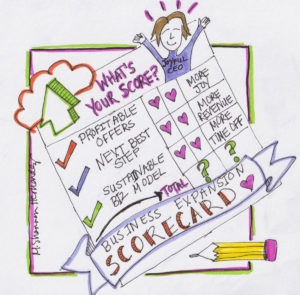 JOYFUL
CEO
WHAT'S
YOUR SCORE?
PROFITABLE
OFFERS
MORE
JOY
NEXT BEST
STEP
MORE
REVENUE
SUSTAINABLE
BIZ MODEL
MORE
TIME OFF
TOTAL
? ?
BUSINESS EXPANSION
SCORECARD